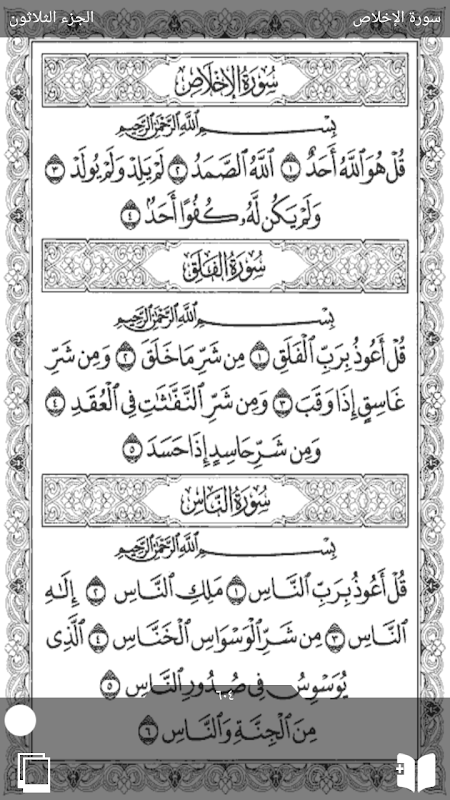 سورة الإخلاص
الجزء الثلاثون
سُورَةُ الإِخْلَاصِ
بِسْمِ ٱللَّهِ ٱلرَّحْمَٰنِ ٱلرَّحِيمِ
قُلْ هُوَ ٱللَّهُ أَحَدٌ ١ ٱللَّهُ ٱلصَّمَدُ ٢ لَمْ يَلِدْ وَلَمْ يُولَدْ ٣
وَلَمْ يَكُن لَّهُۥ كُفُوًا أَحَدٌۢ ٤
سُورَةُ الفَلَقِ
بِسْمِ ٱللَّهِ ٱلرَّحْمَٰنِ ٱلرَّحِيمِ
قُلْ أَعُوذُ بِرَبِّ ٱلْفَلَقِ ١ مِن شَرِّ مَا خَلَقَ ٢ وَمِن شَرِّ
غَاسِقٍ إِذَا وَقَبَ ٣ وَمِن شَرِّ ٱلنَّفَّٰثَٰتِ فِى ٱلْعُقَدِ ٤
وَمِن شَرِّ حَاسِدٍ إِذَا حَسَدَ ٥
سُورَةُ النَّاسِ
بِسْمِ ٱللَّهِ ٱلرَّحْمَٰنِ ٱلرَّحِيمِ
قُلْ أَعُوذُ بِرَبِّ ٱلنَّاسِ ١ مَلِكِ ٱلنَّاسِ ٢ إِلَٰهِ
ٱلنَّاسِ ٣ مِن شَرِّ ٱلْوَسْوَاسِ ٱلْخَنَّاسِ ٤ ٱلَّذِى
يُوَسْوِسُ فِى صُدُورِ ٱلنَّاسِ ٥
٦٠٤
مِنَ ٱلْجِنَّةِ وَٱلنَّاسِ ٦